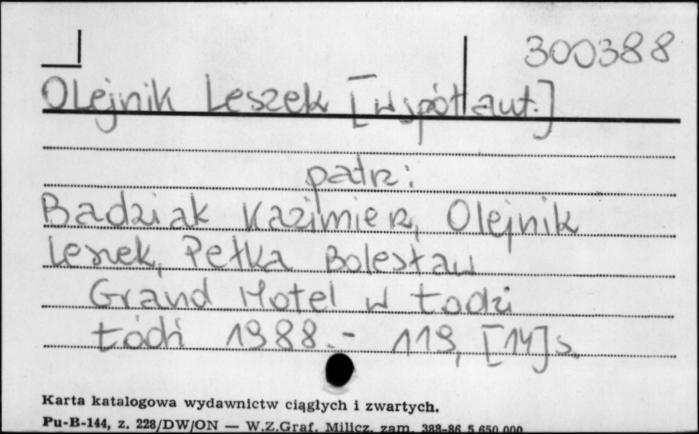 300388
Olejnik Leszek [współaut.]
patrz:
Badziak Kazimierz, Olejnik
Leszek, Pełka Bolesław
Grand Hotel w Łodzi
Łódź 1988.- 119, [14] s.
Karta katalogowa wydawnictw ciągłych i zwartych.
Pu-B-144, z. 228/DW/ON — W.Z.Graf. Milicz, zam. 388-86 5.650.000